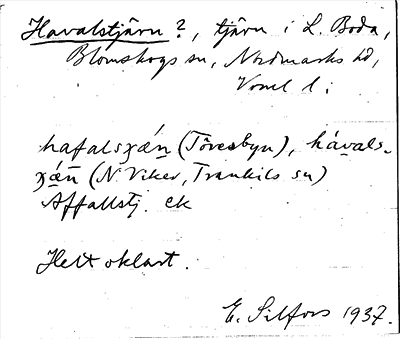 Havalstjärn?, tjärn i L. Boda,
Blomskogs sn, Nordmarks hd,
Vrml l;
hafalsχǽn (Töresbyn), hávals-
χǽn (N. Viker, Trankils sn)
Affallstj. ek
Helt oklart.
E. Silfors 1937.